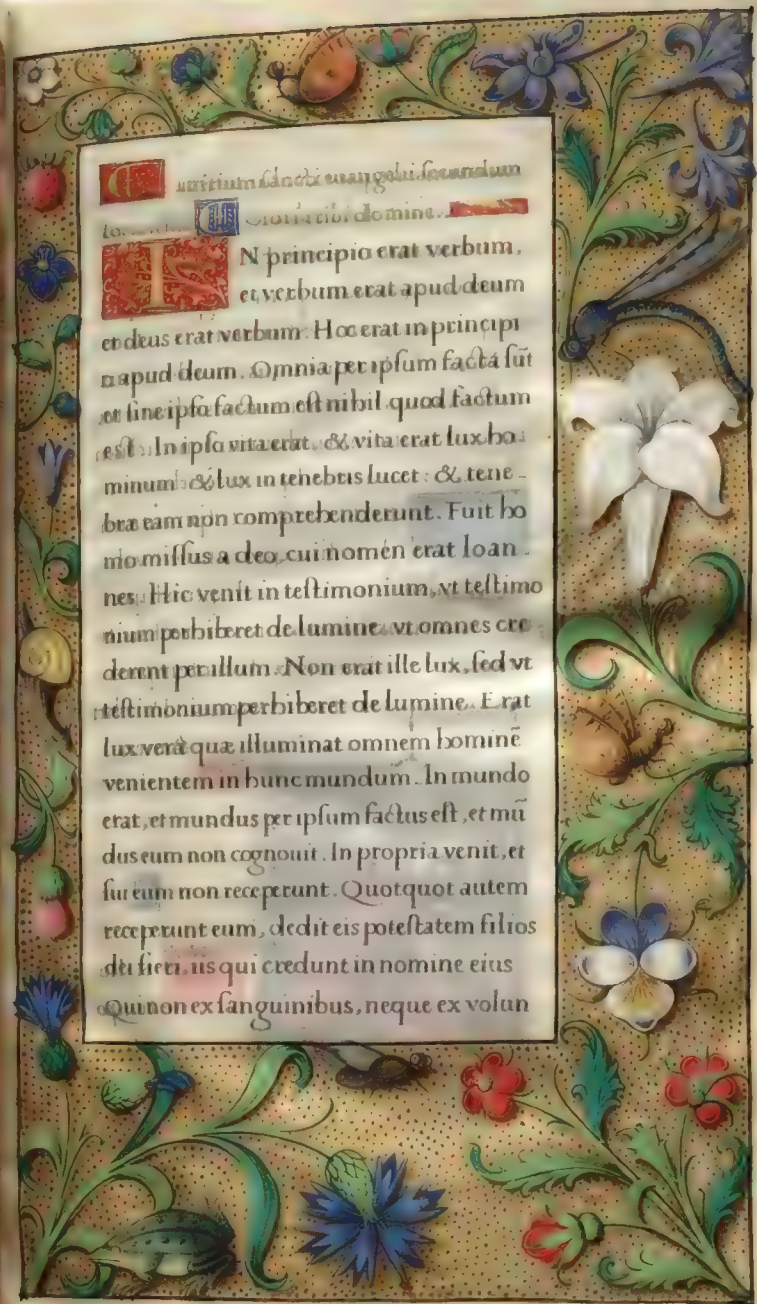 Initium sancti euangelii secundum
Gloria tibi domine.
IN principio erat verbum,
et verbum erat apud deum
et deus erat verbum. Hoc erat in principi
apud deum. Omnia per ipsum facta sūt
et sine ipso factum est nihil quod factum
est. In ipso vita erat. & vita erat lux ho
minum: & lux in tenebris lucet: & tene-
bræ eam non comprehenderunt. Fuit ho
mo missus a deo, cui nomen erat Ioan-
nes. Hic venit in testimonium, vt testimo
nium perhiberet de lumine vt omnes cre
derent per illum. Non erat ille lux, sed vt
testimonium perhiberet de lumine. Erat
lux vera quæ illuminat omnem hominē
venientem in hunc mundum. In mundo
erat, et mundus per ipsum factus est, et mū
dus eum non cognouit. In propria venit, et
sui eum non receperunt. Quotquot autem
receperunt eum, dedit eis potestatem filios
dei fieri, iis qui credunt in nomine eius
Qui non ex sanguinibus, neque ex volun